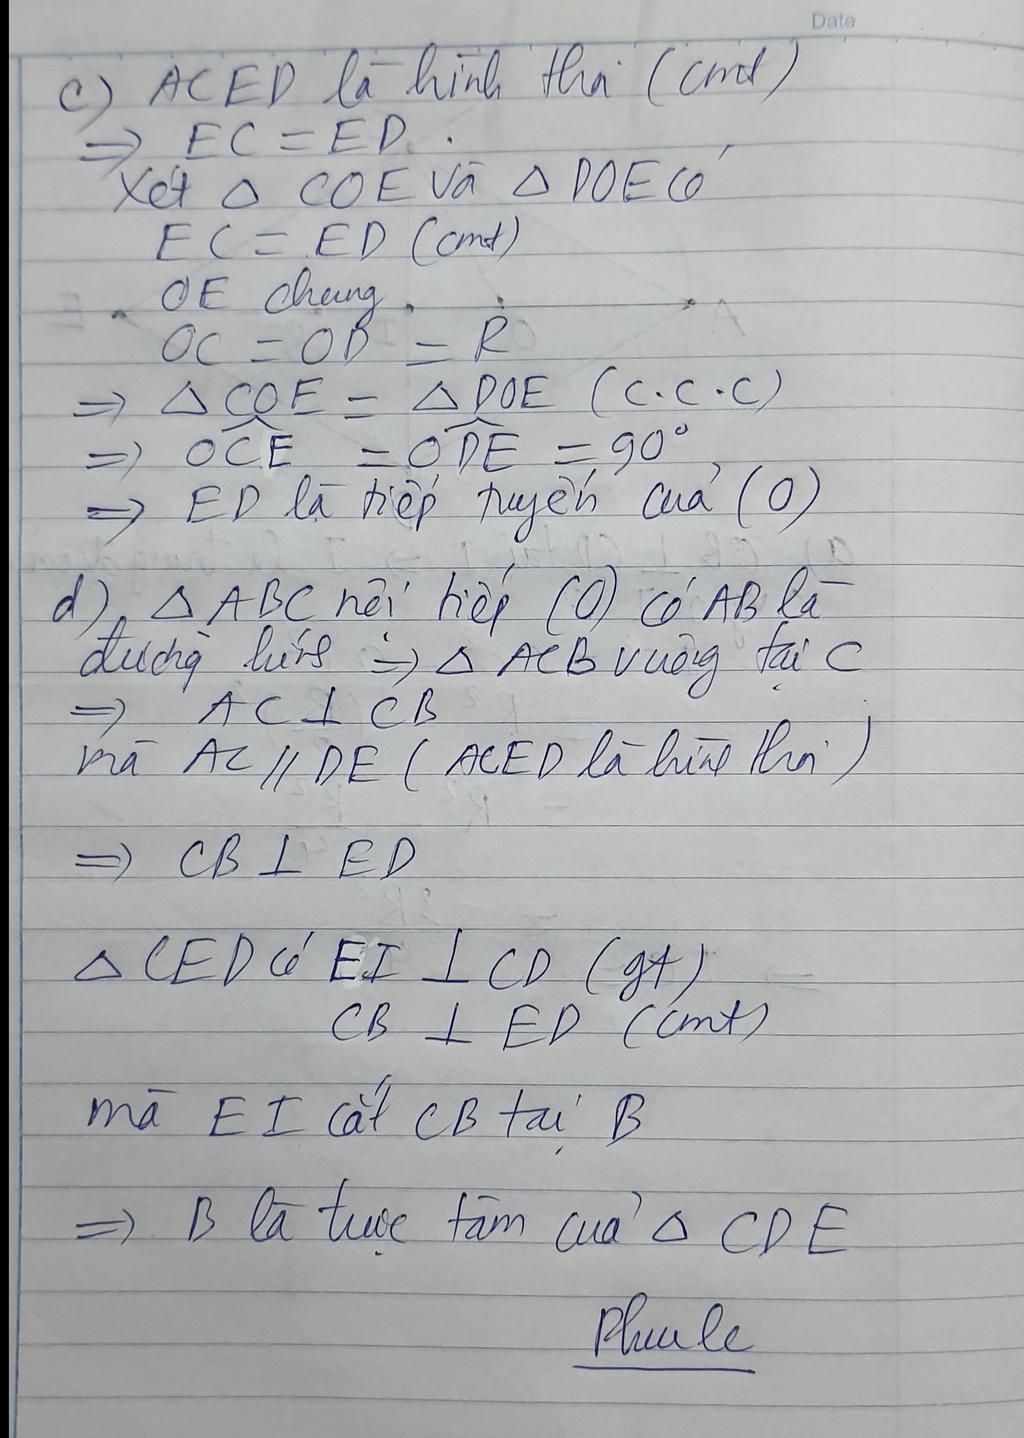 Date
c) ACED là hình thoi (cmt)
⇒ EC = ED.
Xét △ COE và △ DOE có
EC = ED (cmt)
OE chung
OC = OD = R
⇒ △ COE = △ DOE (c.c.c)
⇒ OCE = ODE = 90°
⇒ ED là tiếp tuyến của (O)
d) △ ABC nội tiếp (O) có AB là
đường kính ⇒ △ ACB vuông tại C
⇒ AC ⊥ CB
mà AC // DE (ACED là hình thoi)
⇒ CB ⊥ ED
△ CED có EI ⊥ CD (gt)
CB ⊥ ED (cmt)
mà EI cắt CB tại B
⇒ B là trực tâm của △ CDE